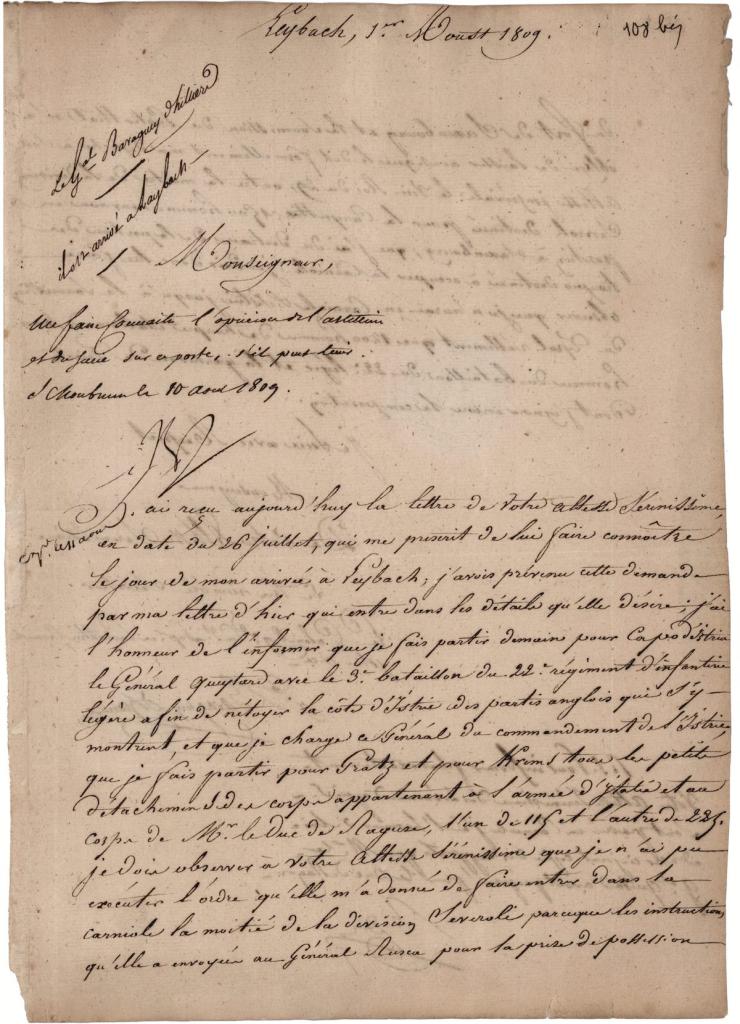 Leybach, 1er Aoust 1809.
108 bis
Le Gal Baraguey d'hilliers
il est arrivé a Laybach
Monseigneur,
Me faire connaitre l'opinion de l'artillerie
et du Genie sur ce poste, s'il peut tenir.
Schonbrunn le 10 aout 1809.
J'ai reçu aujourd'huy la lettre de Votre Altesse Sérénissime,
en date du 26 juillet, qui me prescrit de lui faire connoître
le jour de mon arrivée à Leybach; j'avois prévenu cette demande
par ma lettre d'hier qui entre dans les détails qu'elle désire; j'ai
l'honneur de l'informer que je fais partir demain pour Capo d'istria
le Général Queytard avec le 3e bataillon du 22e régiment d'infanterie
légère afin de nétoyer la côte d'Istrie des partis anglois qui s'y
montrent, et que je charge ce Général du commandement de l'Istrie,
que je fais partir pour Gratz et pour Krems tous les petits
détachemens des corps appartenant à l'armée d'Italie et au
corps de Mr. le Duc de Raguse, l'un de 115 et l'autre de 225.
je dois observer à Votre Altesse Sérénissime que je n'ai pu
exécuter l'ordre qu'elle m'a donné de faire entrer dans la
carniole la moitié de la division Severoli parceque les instructions
qu'elle a envoyées au Général Rusca pour la prise de possession